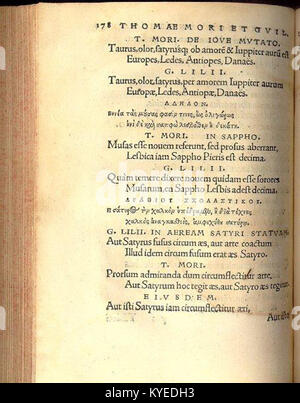 178 THOMAE MORI ET GVIL.
T. MORI. DE IOVE MVTATO.
Taurus, olor, satyrusq; ob amorē & Iuppiter aurū est
Europes, Ledes, Antiopes, Danaes.
G. LILII.
Taurus, olor, satyrus, per amorem Iuppiter aurum
Europæ, Ledes, Antiopæ, Danaës.
ΑΔΗΛΟΝ.
T. MORI. IN SAPPHO.
Musas esse nouem referunt, sed prorsus aberrant,
Lesbica iam Sappho Pieris est decima.
G. LILII.
Quàm temere dixere nouem quidam esse sorores
Musarum, en Sappho Lesbis adest decima.
ΑΓΑΘΙΟΥ ΣΧΟΛΑΣΤΙΚΟΥ.
G. LILII. IN AEREAM SATYRI STATVAM.
Aut Satyrus fusus circum æs, aut arte coactum
Illud idem circum fusum erat æs Satyro.
T. MORI.
Prorsum admiranda dum circumflectitur arte,
Aut Satyrum hoc tegit æs, aut Satyro æs tegitur.
EIVSDEM.
Aut isti Satyrus iam circumflectitur æri,
Aut isto
alamy
Image ID: KYEDH3
www.alamy.com